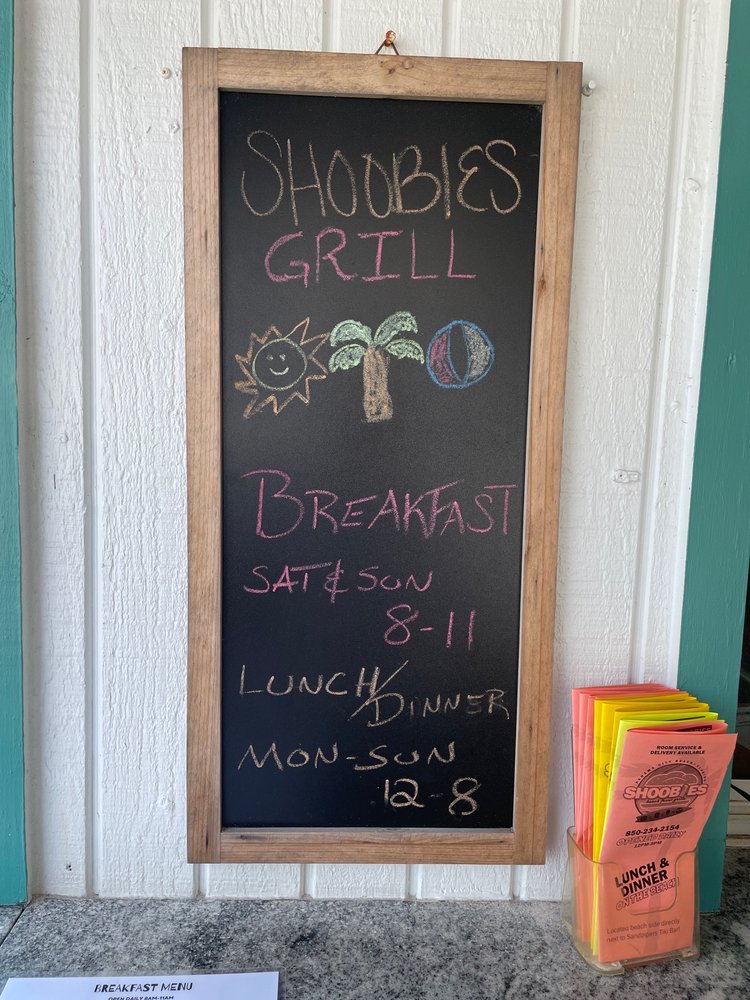 SHOOBIES
GRILL
BREAKFAST
SAT & SUN
8-11
LUNCH/DINNER
MON-SUN
12-8
ROOM SERVICE &
DELIVERY AVAILABLE
SHOOBIES
850-234-2154
OPENED DAILY
12PM-8PM
LUNCH &
DINNER
ON THE BEACH
Located beach side directly
next to Sandpipers Tiki Bar!
BREAKFAST MENU
OPEN DAILY 8AM-11AM